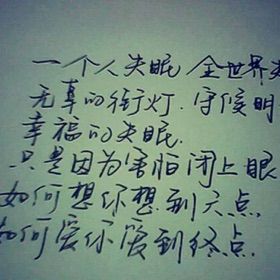 一个人失眠 全世界失
无辜的街灯.守候明
幸福的失眠.
只是因为害怕闭上眼
如何想你想到六点
如何爱你爱到终点.